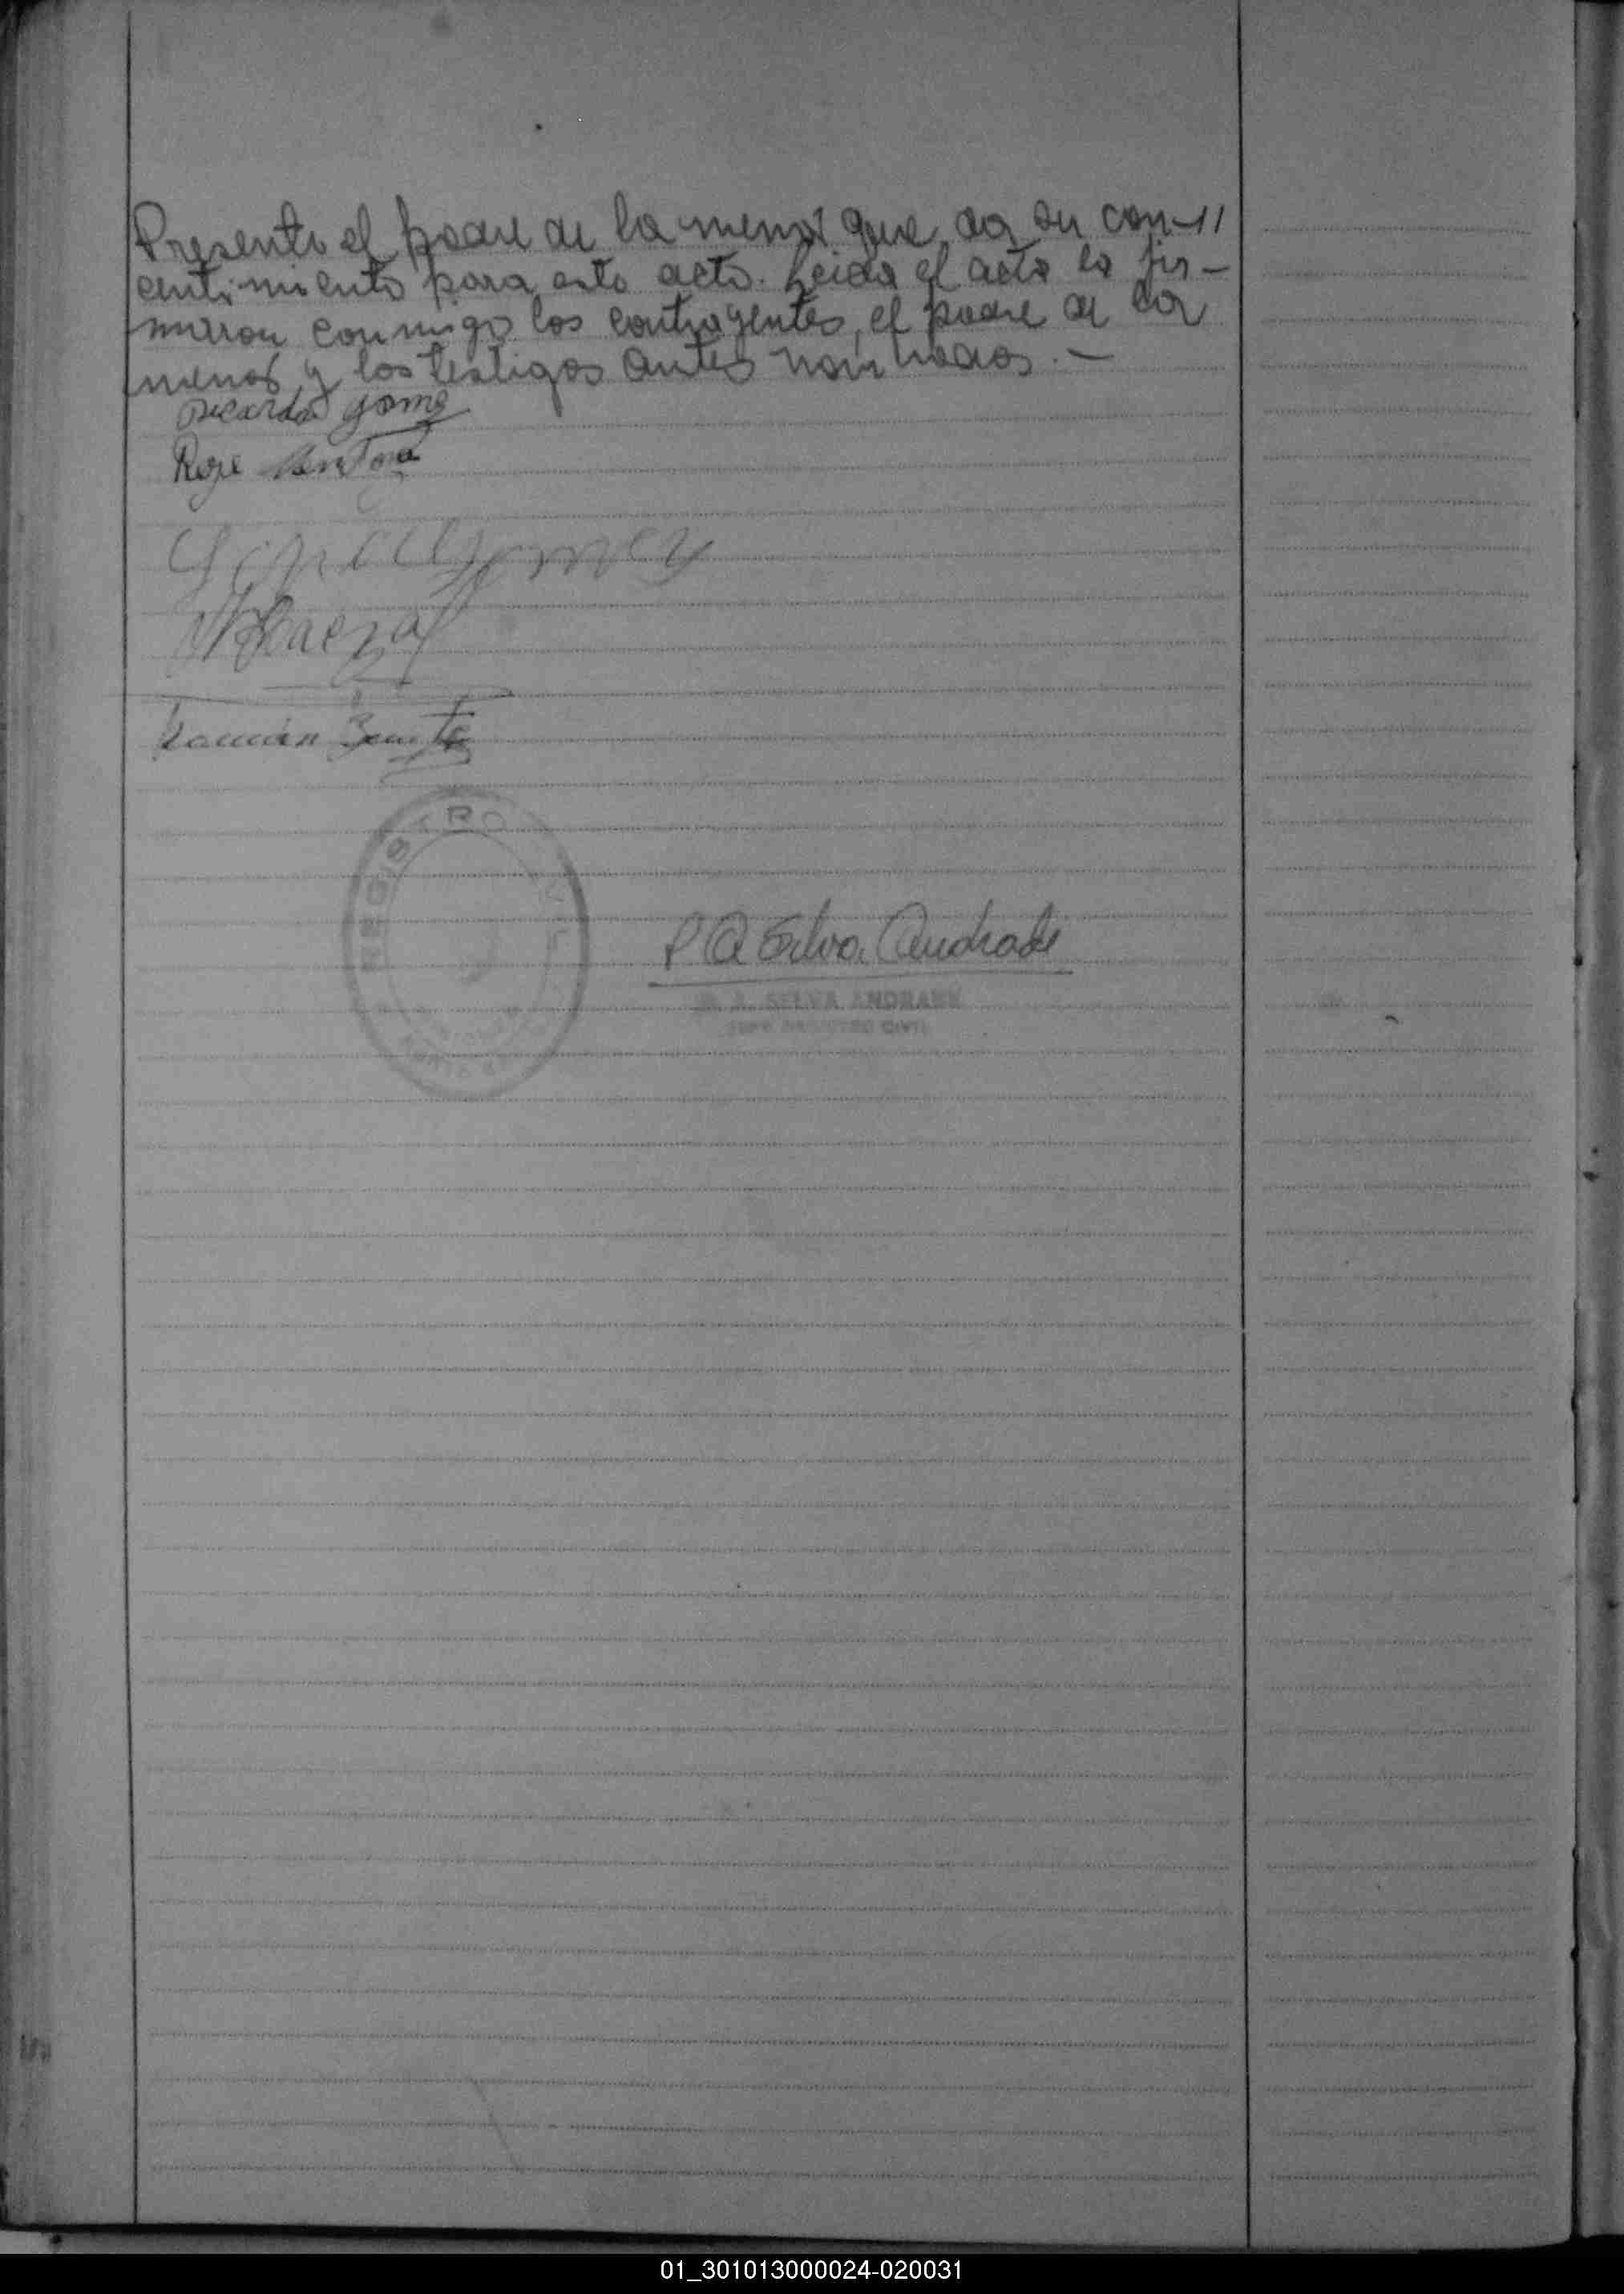 Presente el padre de la menor que da su con-//
centimiento para este acto. Leida el acta la fir-
maron conmigo los contrayentes, el padre de la
menor y los testigos antes nombrados. —
Ricardo Gome
Rose
Ramón Benite
REGISTRO CIVIL
P A Silva Andrade
P. A. SILVA ANDRADE
JEFE REGISTRO CIVIL
01_301013000024-020031